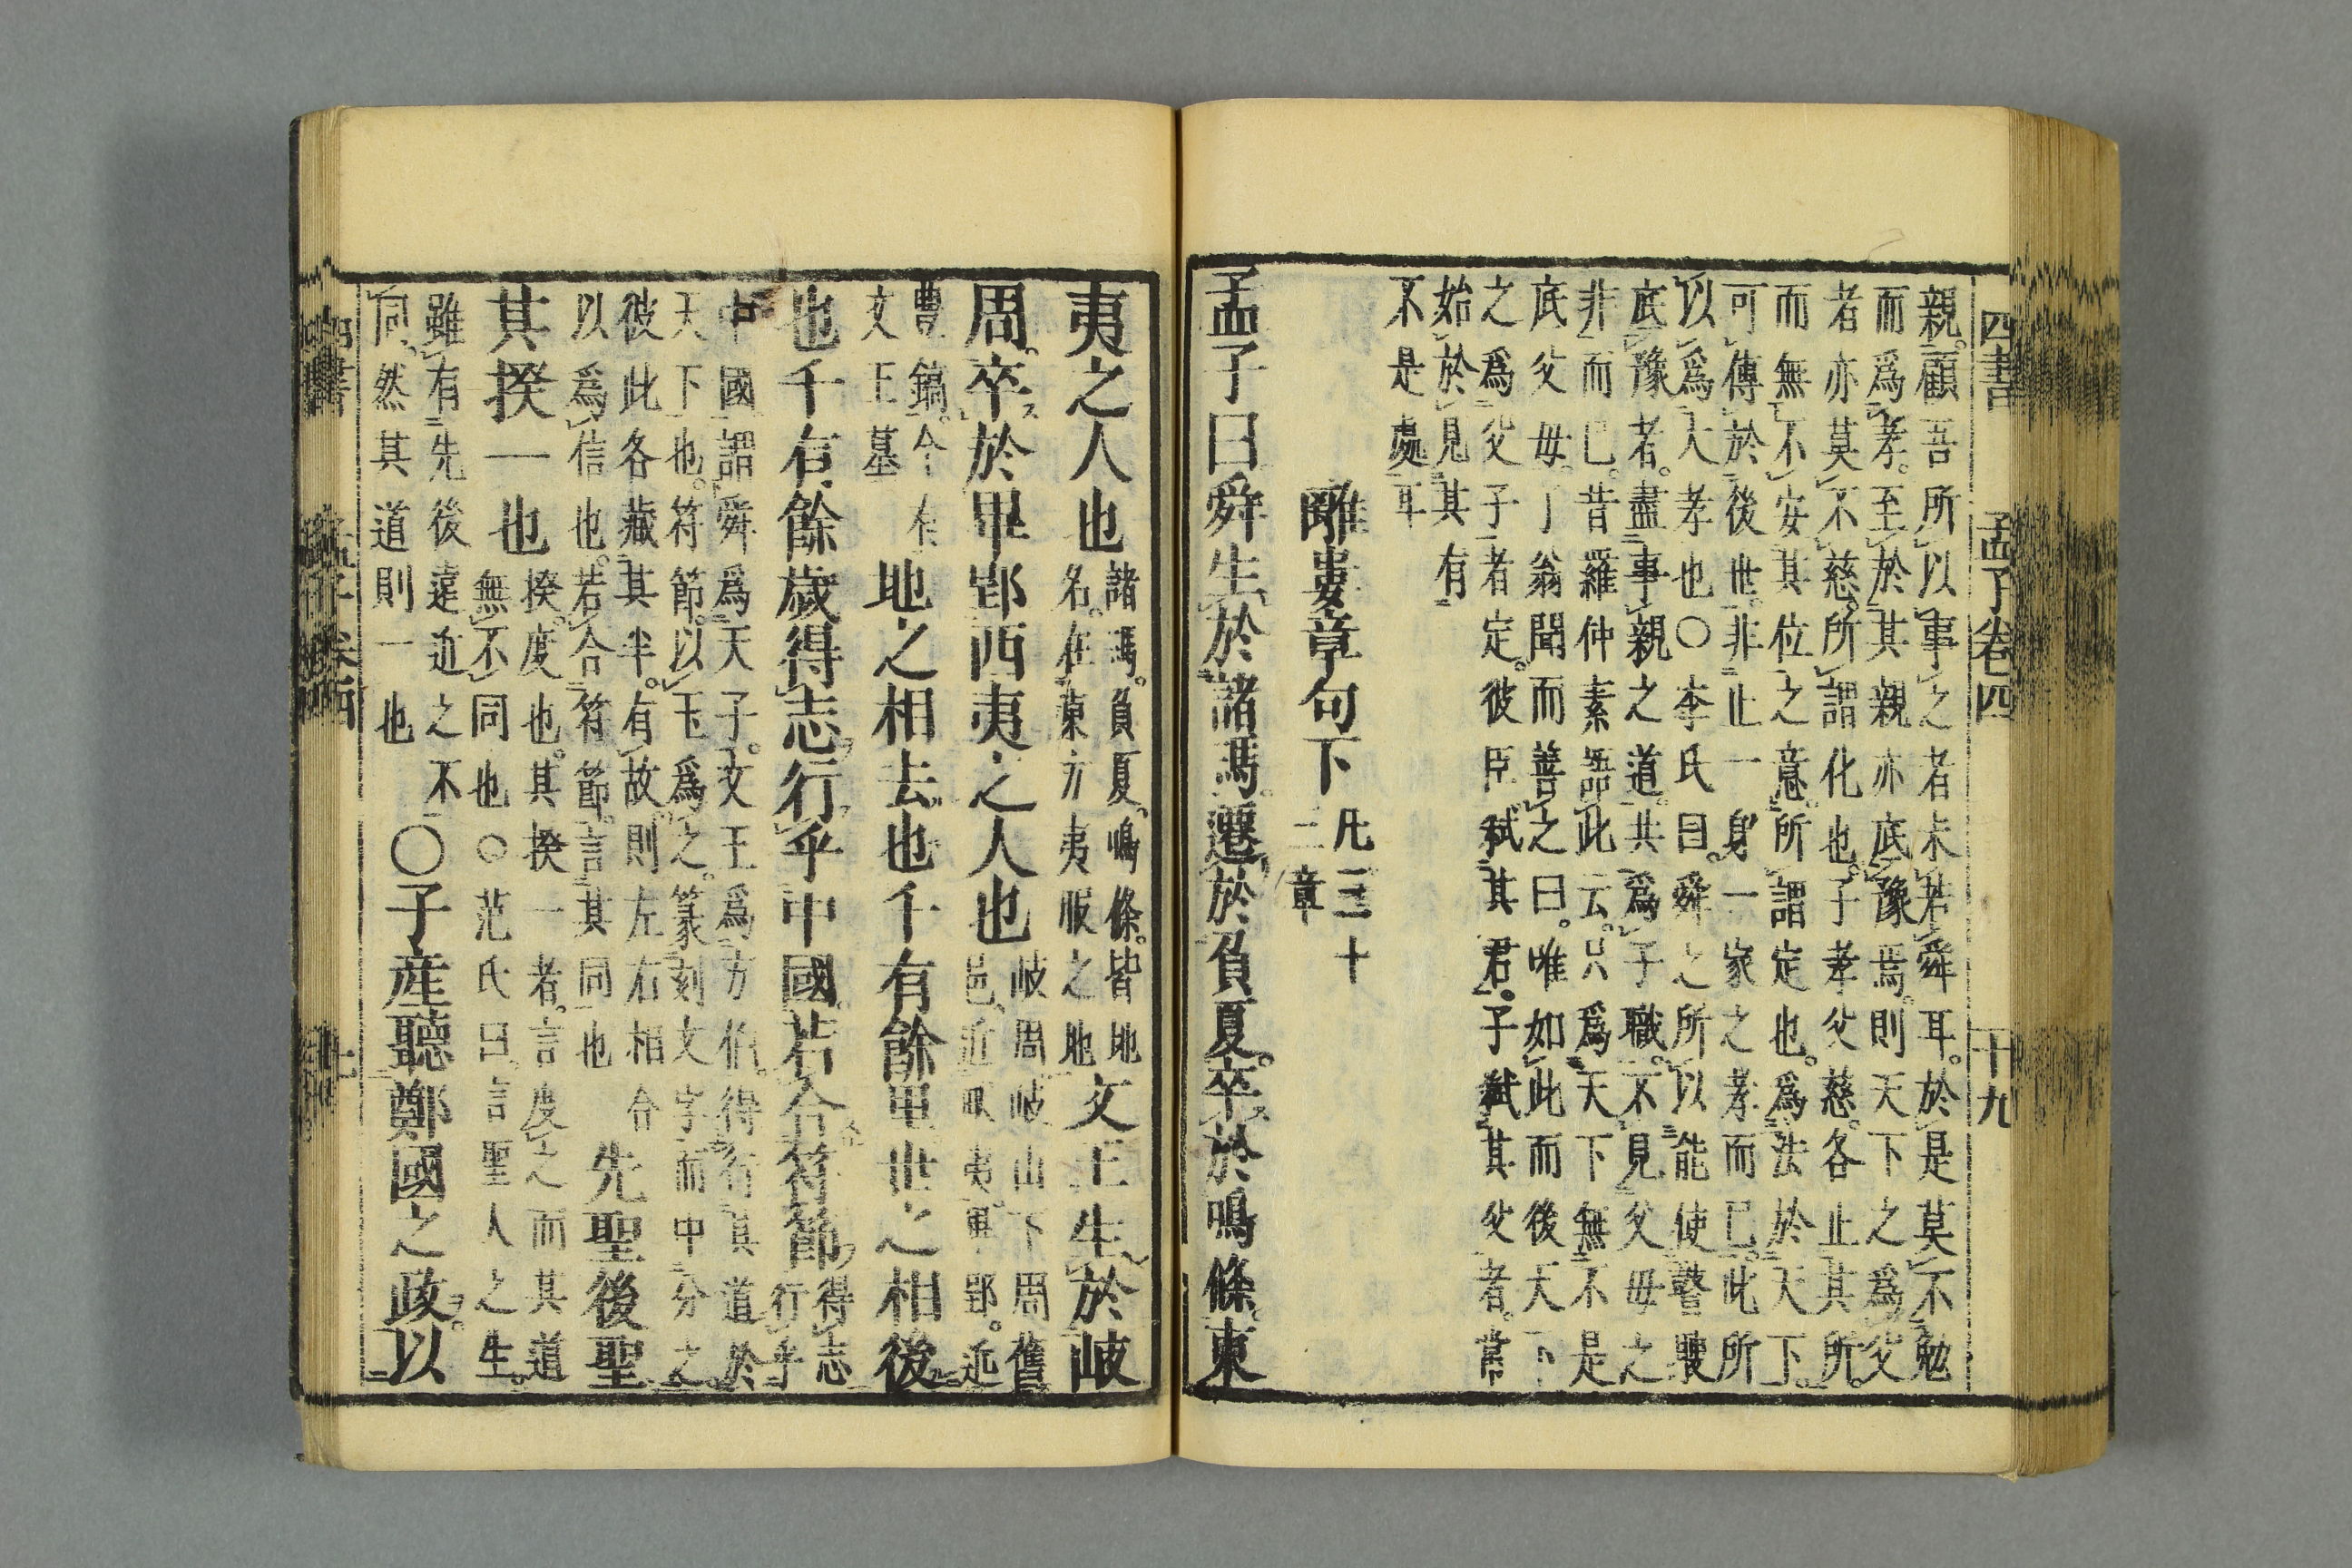 四書　孟子卷四　十九
親。顧吾所以事之者未若舜耳。於是莫不勉
而爲孝。至於其親亦底豫焉。則天下之爲父
者亦莫不慈。所謂化也。子孝父慈。各止其所。
而無不安其位之意。所謂定也。爲法於天下。
可傳於後世。非止一身一家之孝而已。此所
以爲大孝也○李氏曰。舜之所以能使瞽瞍
底豫者。盡事親之道。共爲子職。不見父母之
非而已。昔羅仲素語此云。只爲天下無不是
底父母。了翁聞而善之曰。唯如此而後天下
之爲父子者定。彼臣弑其君。子弑其父者。常
始於見其有
不是處耳
離婁章句下
凡三十
三章
孟子曰舜生於諸馮。遷於負夏。卒於鳴條。東
夷之人也
諸馮。負夏。鳴條。皆地
名。在東方夷服之地
文王生於岐
周。卒於畢郢西夷之人也
岐周岐山下周舊
邑。近畎夷。畢郢。近
豐鎬。今有
文王墓
地之相去也千有餘里世之相後
也千有餘歲得志行乎中國。若合符節
得志
行乎
中國謂舜爲天子。文王爲方伯。得行其道於
天下也。符節。以玉爲之。篆刻文字而中分之。
彼此各藏其半。有故。則左右相合
以爲信也。若合符節。言其同也
先聖後聖
其揆一也
揆。度也。其揆一者。言度之而其道
無不同也○范氏曰。言聖人之生。
雖有先後遠近之不
同。然其道則一也
○子産聽鄭國之政。以